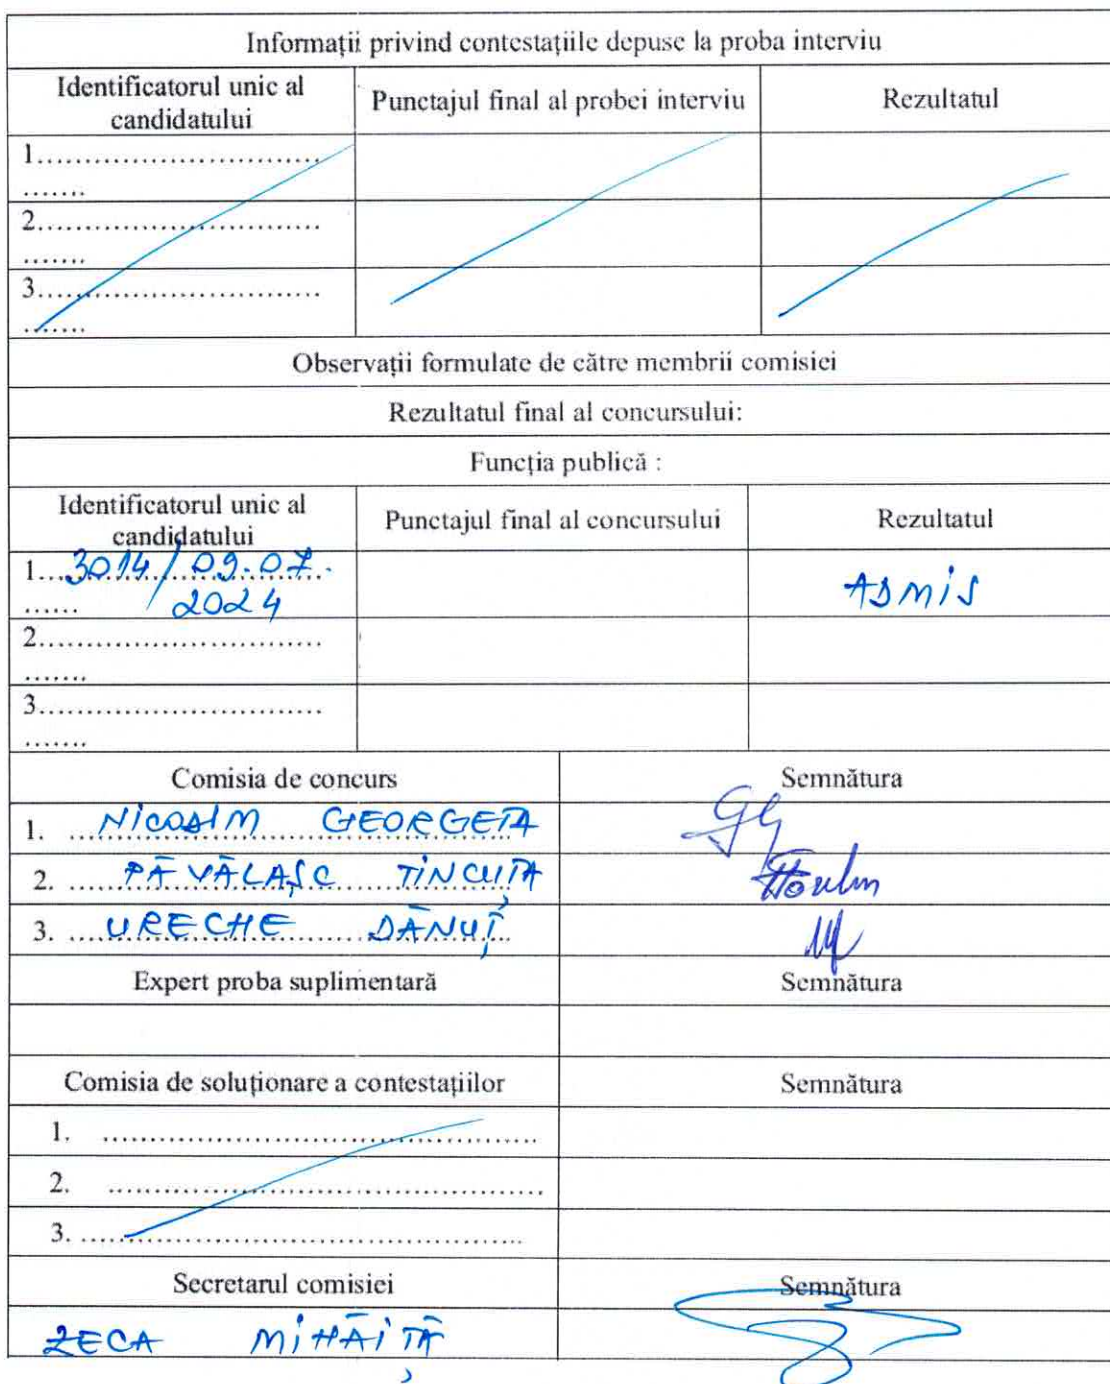 Informații privind contestațiile depuse la proba interviu
Identificatorul unic al candidatului
Punctajul final al probei interviu
Rezultatul
1..............................
.......
2..............................
.......
3..............................
.......
Observații formulate de către membrii comisiei
Rezultatul final al concursului:
Funcția publică :
Identificatorul unic al candidatului
Punctajul final al concursului
Rezultatul
1... 3014/09.07.
...... 2024
ADMIS
2..............................
.......
3..............................
.......
Comisia de concurs
Semnătura
1. GEORGETA
2. PĂVĂLAȘC TINCUȚA
3. URECHE DĂNUȚ
Expert proba suplimentară
Semnătura
Comisia de soluționare a contestațiilor
Semnătura
1. ...............................................
2. ...............................................
3. ...............................................
Secretarul comisiei
Semnătura
ZECA MIHĂIȚĂ